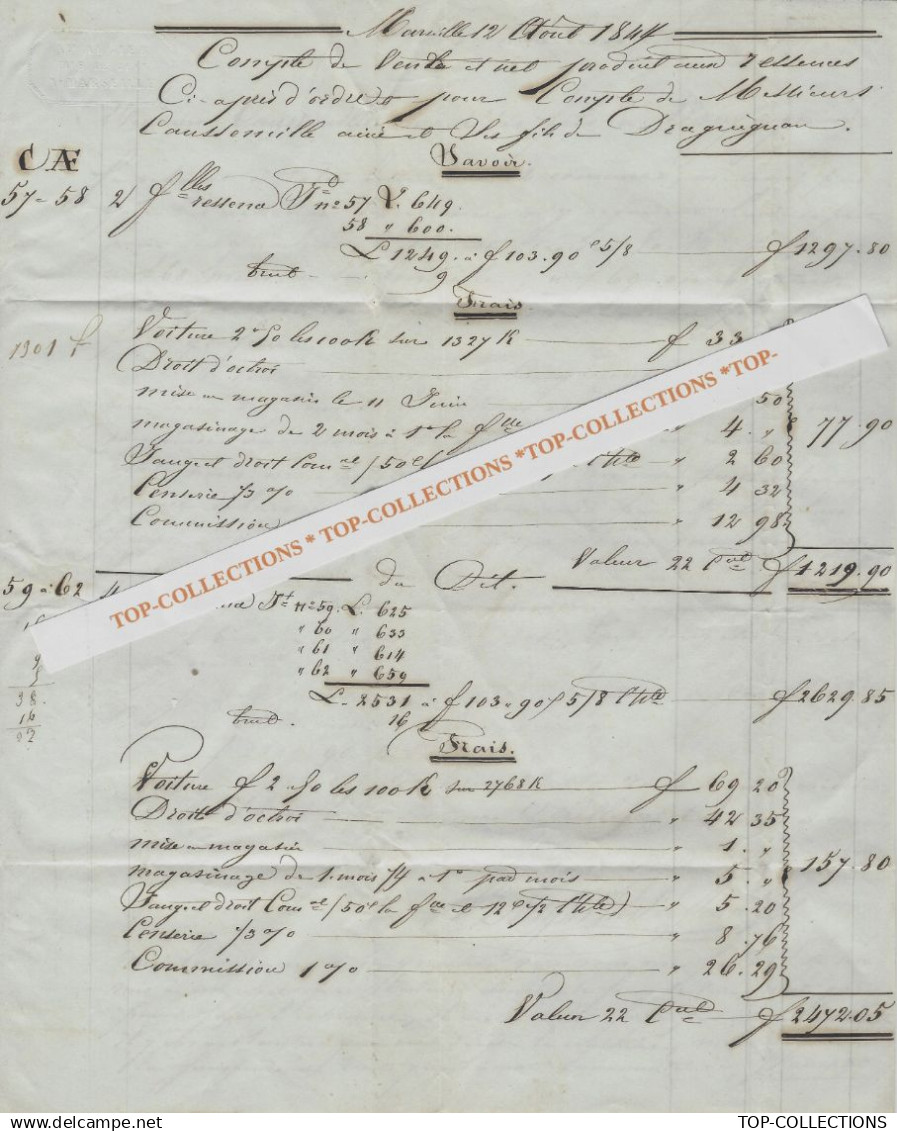 Marseille 12 Août 1844
Compte de Vente et net produit aux 7 essences
Ci-après d'ordre et pour Compte de Messieurs
Caussemille ainé et Ses fils de Draguignan.
Savoir.
CÆ
57-58 2 flles ressence Pd no 57 L. 649.
58 " 600.
L 1249 à f 103.90 c 5/8 f 1297.80
brut 9
Frais
Voiture 2 f 50 les 100 K sur 1327 K f 33
1901 f
Droit d'octroi
mise en magasin le 11 Juin 50
magasinage de 2 mois à 1f la flle " 4 "
Jauge et droit Comal / 50c " 2 60
77.90
Censerie 1/3 % " 4 32
Commission " 12 98
Valeur 22 f 1219.90
59 à 62 4 du Dit.
Pt no 59. L. 625
" 60 " 633
" 61 " 614
" 62 " 659
L. 2531 à f 103.90 c 5/8 l'hlte f 2629.85
brut. 16
38
16
Frais.
Voiture f 2.50 les 100 K sur 2768 K f 69 20
Droit d'octroi " 42 35
mise en magasin " 1. "
magasinage de 1 mois 1/4 à 1f par mois " 5 "
157.80
Jauge et droit Comal (50c la flle et 12c 1/2 l'hlte) " 5.20
Censerie 1/3 % " 8.76
Commission 1 % " 26.29
Valeur 22 f 2472.05
TOP-COLLECTIONS * TOP-COLLECTIONS *TOP-COLLECTIONS *TOP-
TOP-COLLECTIONS